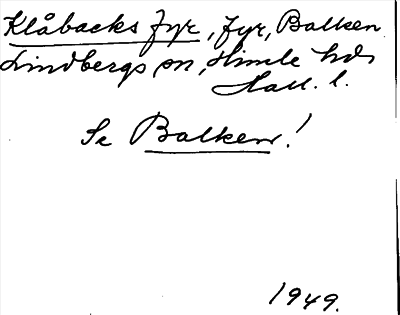 Klåbacks fyr, fyr, Balken
Lindbergs sn, Himle hd
Hall. l.
Se Balken!
1949.